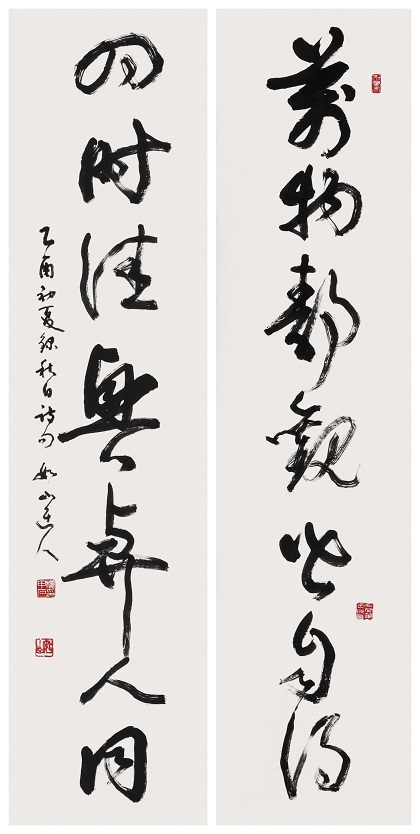 萬物靜觀皆自得
四時佳興與人同
乙酉初夏錄秋日詩句 山道人